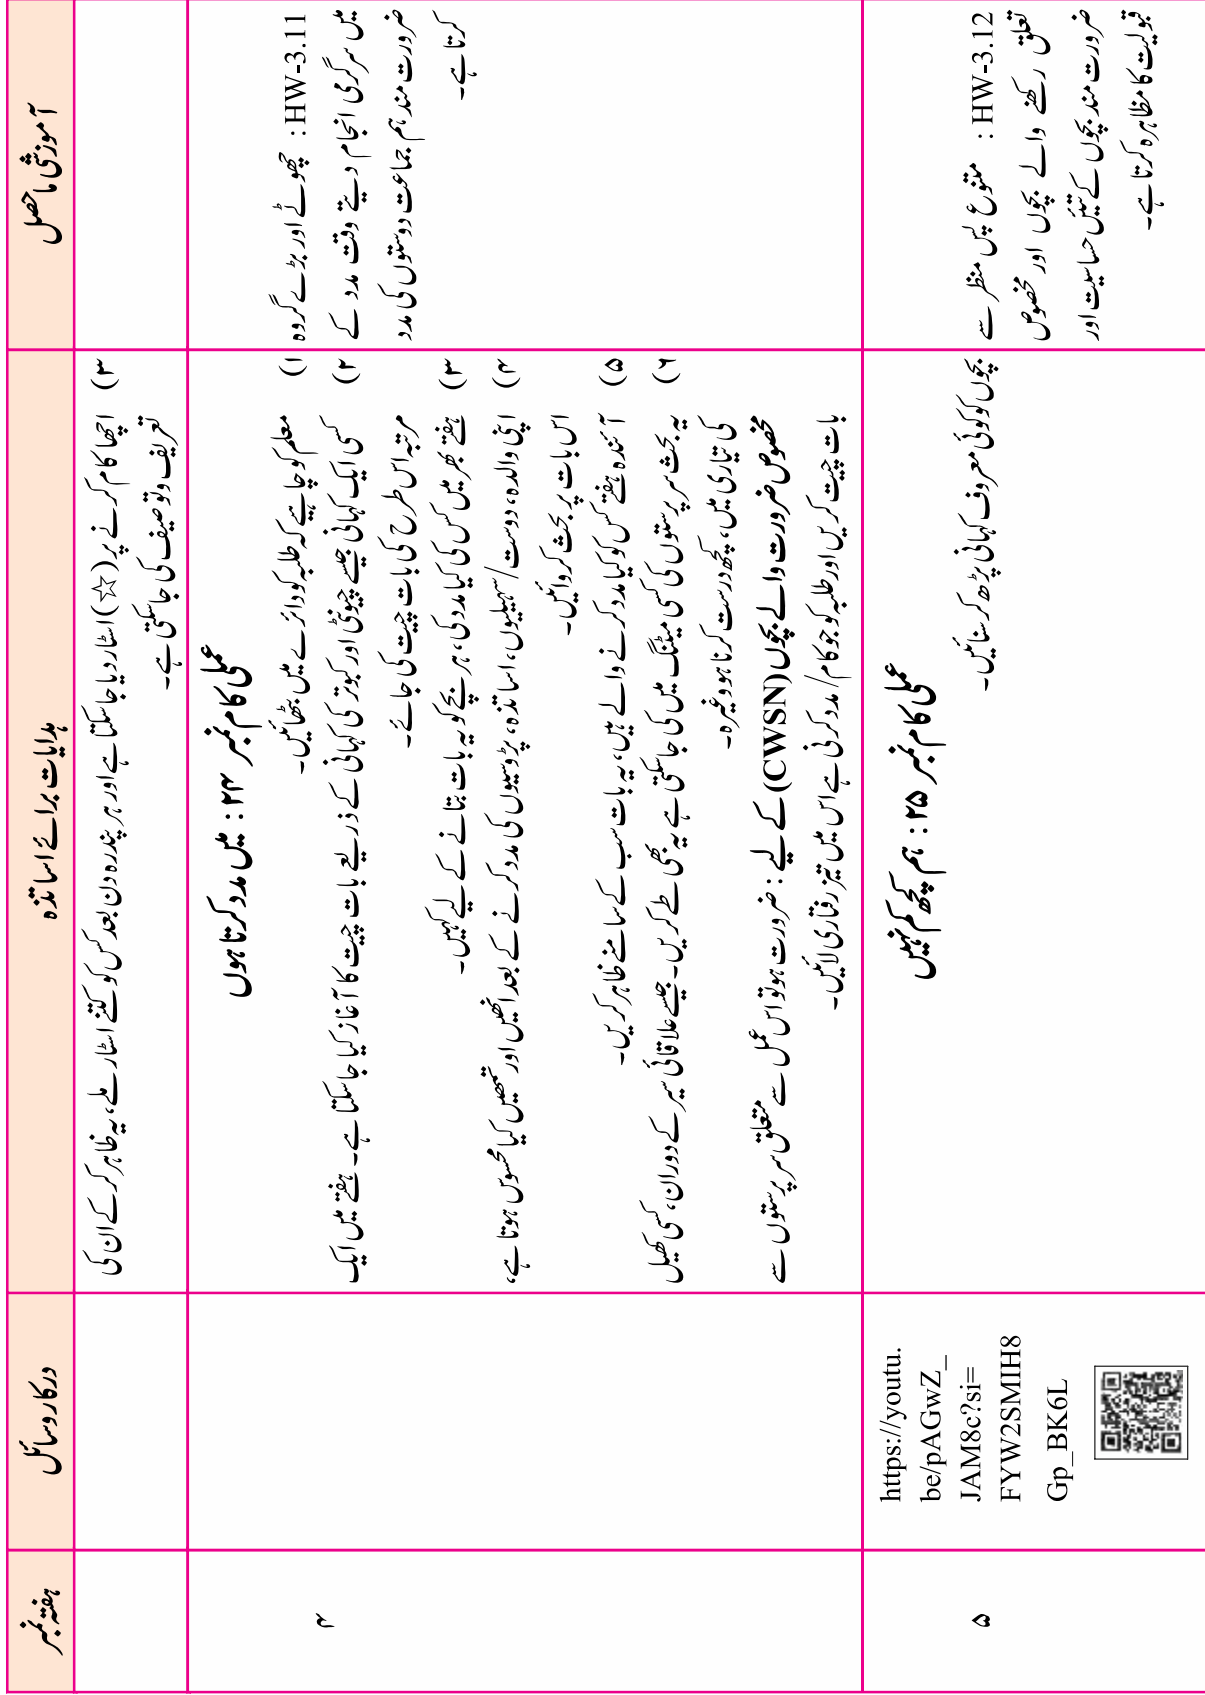 آموزشی ماحصل
ہدایات برائے اساتذہ
درکار وسائل
ہفتہ نمبر
۳) اچھا کام کرنے پر (☆) اسٹار دیا جاسکتا ہے اور ہر پندرہ دن بعد کس کو کتنے اسٹار ملے، یہ ظاہر کرکے ان کی
تعریف و توصیف کی جاسکتی ہے۔
HW-3.11 : چھوٹے اور بڑے گروہ
میں سرگرمی انجام دیتے وقت مدد کے
ضرورت مند ہم جماعت دوستوں کی مدد
کرتا ہے۔
عملی کام نمبر ۲۴ : میں مدد کرتا ہوں
۱) معلم کو چاہیے کہ طلبہ کو دائرے میں بٹھائیں۔
۲) کسی ایک کہانی جیسے چیونٹی اور کبوتر کی کہانی کے ذریعے بات چیت کا آغاز کیا جاسکتا ہے۔ ہفتے میں ایک
مرتبہ اس طرح کی بات چیت کی جائے۔
۳) ہفتے بھر میں کس کی کیا مدد کی، ہر بچے کو یہ بات بتانے کے لیے کہیں۔
۴) اپنی والدہ، دوست/سہیلیوں، اساتذہ، پڑوسیوں کی مدد کرنے کے بعد انھیں اور تمھیں کیا محسوس ہوتا ہے،
اس بات پر بحث کروائیں۔
۵) آئندہ ہفتے کس کو کیا مدد کرنے والے ہیں، یہ بات سب کے سامنے ظاہر کریں۔
۶) یہ بحث سرپرستوں کی کسی میٹنگ میں کی جاسکتی ہے یہ بھی طے کریں۔ جیسے علاقائی سیر کے دوران، کسی کھیل
کی تیاری میں، کچھ درست کرنا ہو وغیرہ۔
مخصوص ضرورت والے بچوں (CWSN) کے لیے : ضرورت ہو تو اس عمل سے متعلق سرپرستوں سے
بات چیت کریں اور طلبہ کو جو کام/مدد کرنی ہے اس میں تیز رفتاری لائیں۔
۴
HW-3.12 : متنوع پس منظر سے
تعلق رکھنے والے بچوں اور مخصوص
ضرورت مند بچوں کے تئیں حساسیت اور
قبولیت کا مظاہرہ کرتا ہے۔
عملی کام نمبر ۲۵ : ہم کچھ کم نہیں
بچوں کو کوئی معروف کہانی پڑھ کر سنائیں۔
https://youtu.
be/pAGwZ_
JAM8c?si=
FYW2SMIH8
Gp_BK6L
۵